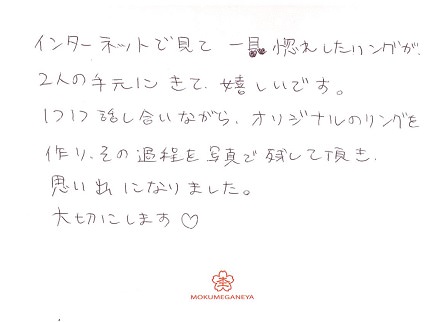 インターネットで見て 一目惚れしたリングが、
2人の手元にきて、嬉しいです。
1つ1つ話し合いながら、オリジナルのリングを
作り、その過程を写真で残して頂き、
思い出になりました。
大切にします♡
MOKUMEGANEYA